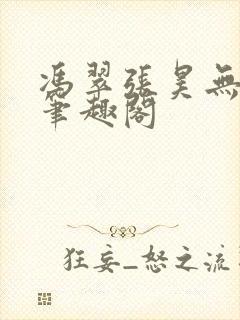 馮翠張昊無
筆趣閣
狂妄_怒之流